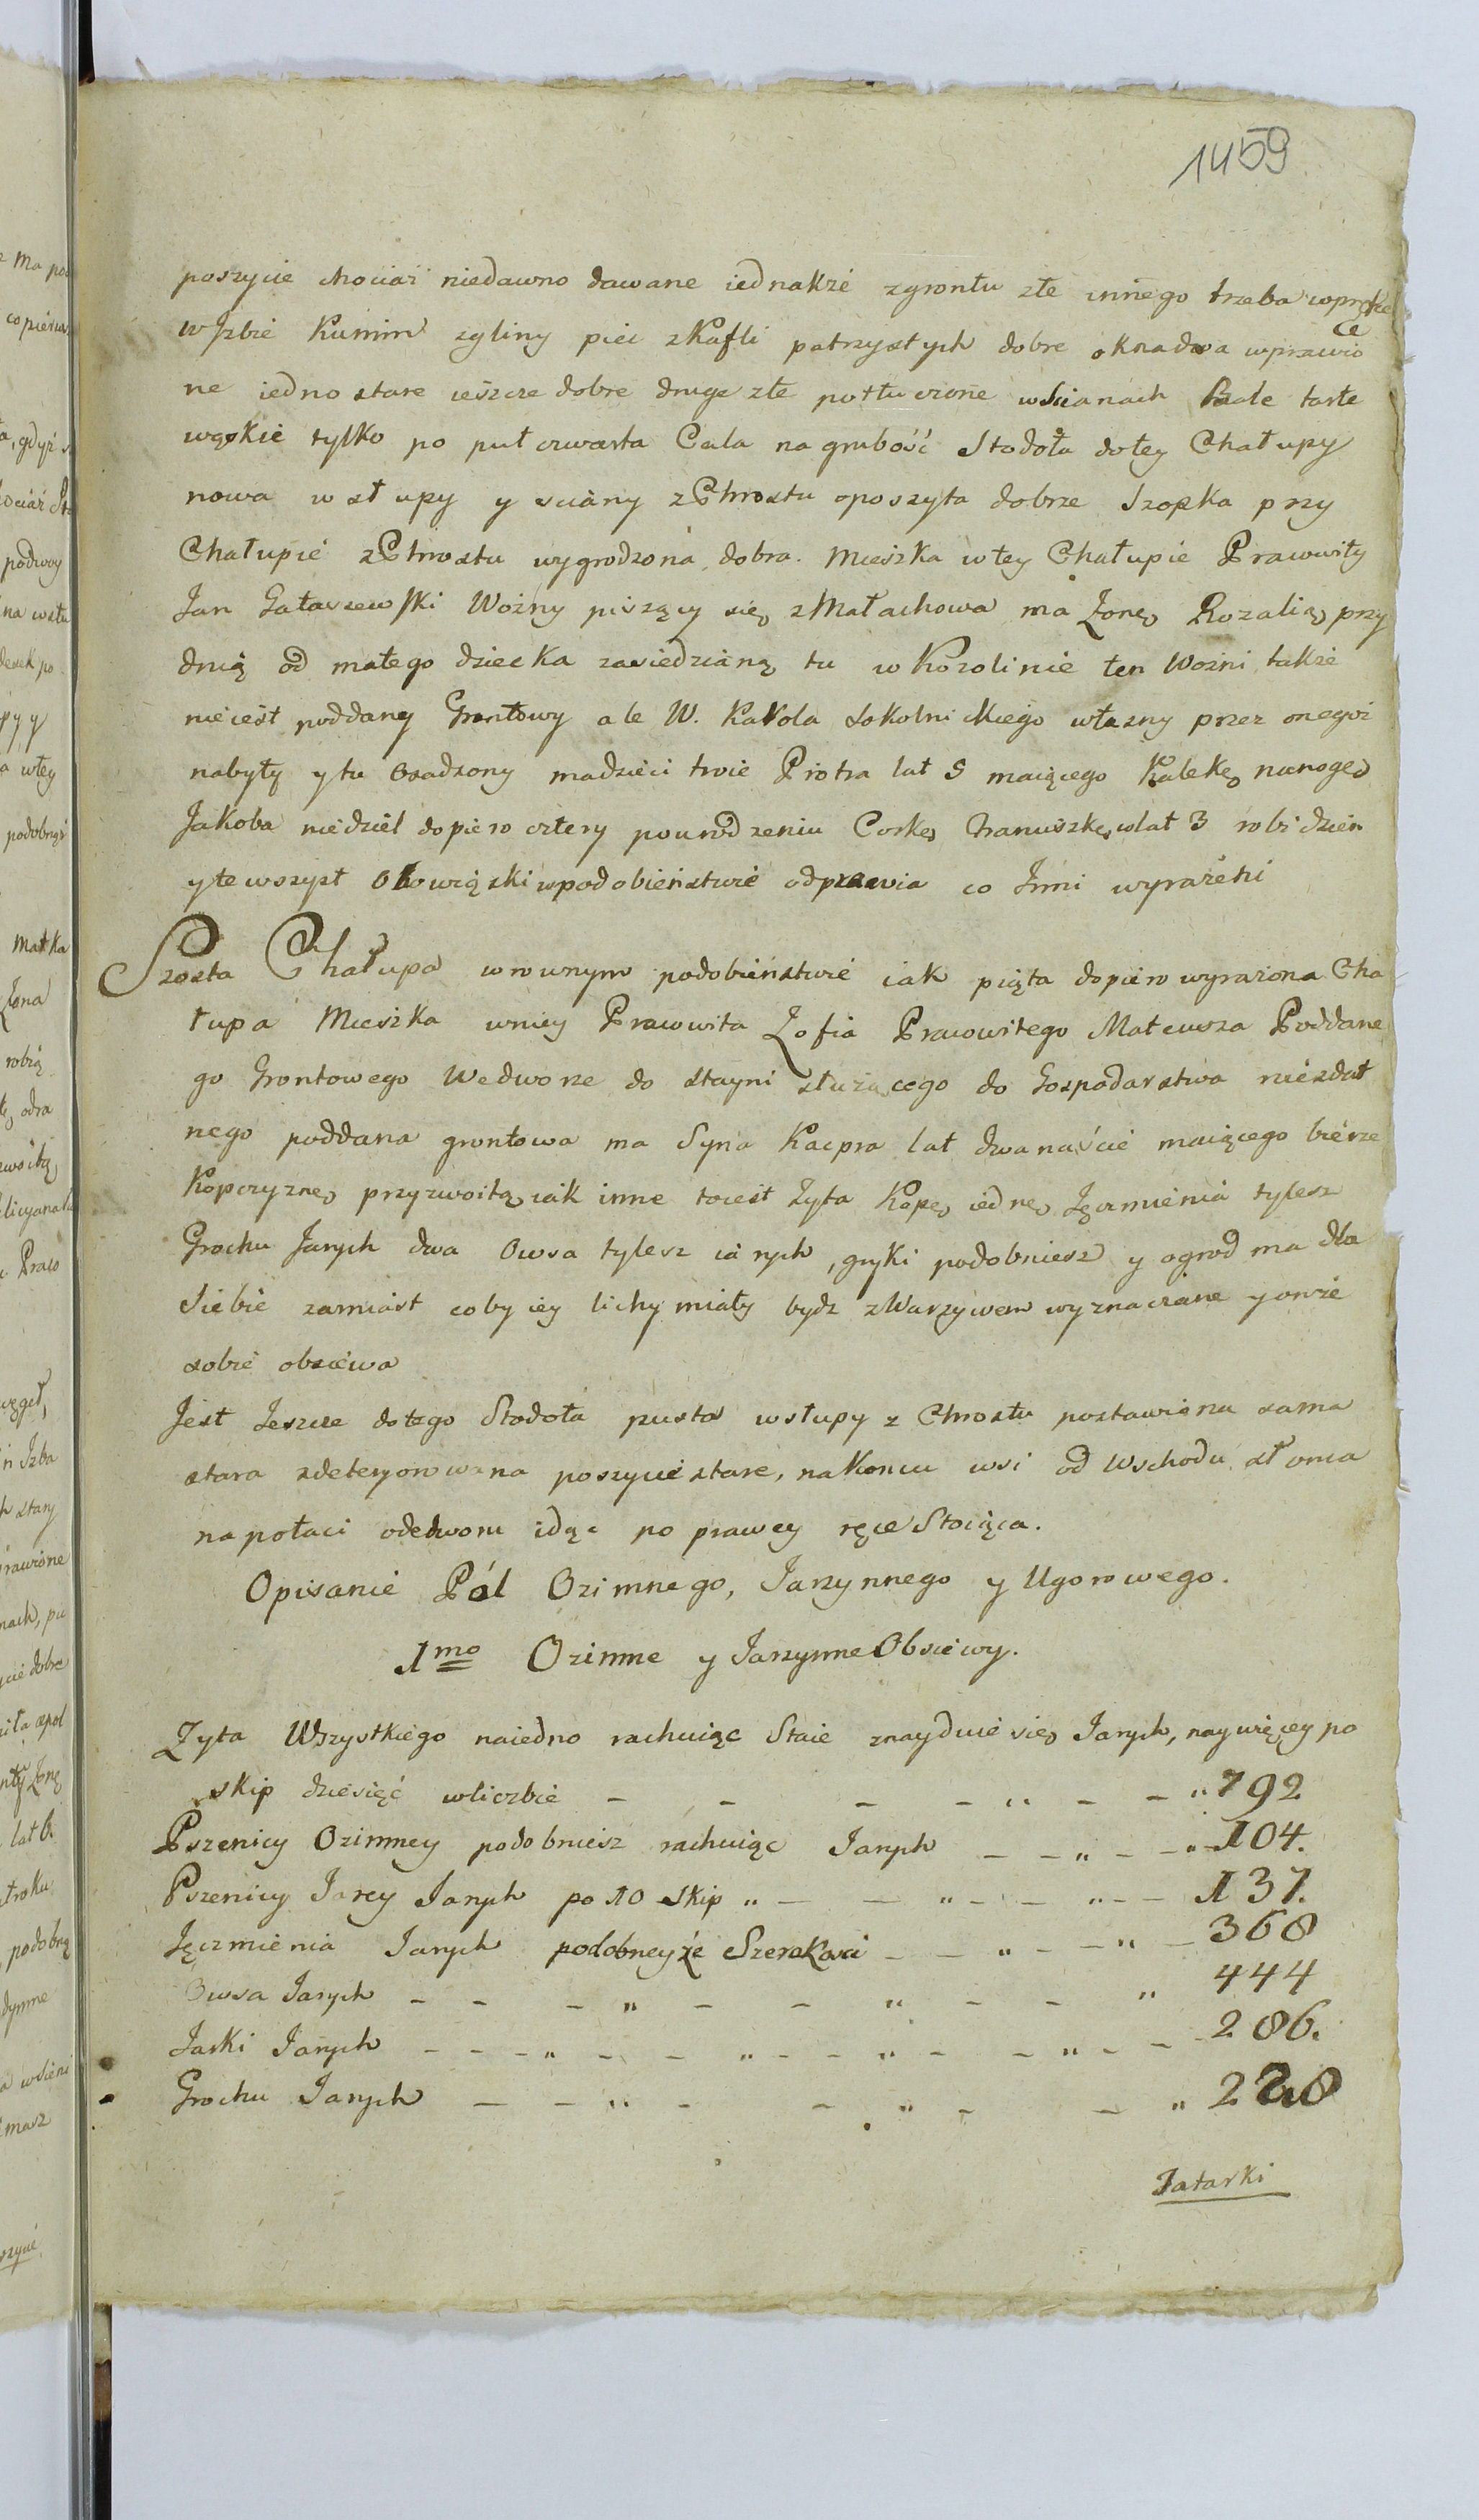 1459
poszycie chociaż niedawno dawane iednakże zgrontu złe innego trzeba wprętce
w Jzbie Kumin zgliny piec zKafli patrzystych dobre okna dwa wprawio
ne iedno stare ieszcze dobre drugie złe potłuczone w Scianach Bale tarte
wąskie tylko po puł czwarta Cala na grubość Stodoła do tey Chałupy
nowa w słupy y sciany z Chrostu poszyta dobrze Szopka przy
Chałupie z Chrostu wygrodzona dobra. Mieszka w tey Chałupie Prawowity
Jan Gałaszewski Woźny piszący się z Małachowa ma Żonę Rozalią przy
dnią od małego dziecka zasiedzianą tu w Kozolinie ten Woźni także
nieiest poddany Grontowy ale W. Karola Sokolnickiego własny przez onegoż
nabyty y tu Osadzony ma dzieci troie Piotra lat 5 maiącego Kalekę na nogę
Jakoba niedziel dopiero cztery po urodzeniu Corkę Franuszkę w lat 3 robi dzien
y te wszyst Obowiązki w podobieństwie odprawia co Inni wyrażeni
Szosta Chałupa w rownym podobieństwie iak piąta dopiero wyrażona Cha
łupa Mieszka w niey Prawowita Zofia Prawowitego Mateusza Poddane
go Grontowego We dworze do Stayni służącego do Gospodarstwa niezdat
nego poddana grontowa ma Syna Kacpra lat dwanaście maiącego bierze
Kopczyznę przyzwoitą iak inne to iest Żyta Kopę iednę Jęczmienia tylesz
Grochu Janych dwa Owsa tylesz ianych, gryki podobniesz y ogrod ma dla
siebie zamiast coby iey lichy miały bydz z Warzywem wyznaczane y onże
sobie obsiewa
Jest Jeszcze do tego Stodoła pusta w słupy z Chrostu postawiona sama
stara zdeteryorowana poszycie stare, na Koncu wsi od Wschodu słonca
na połaci ode dworu idąc po prawey ręce Stoiąca.
Opisanie Pól Ozimnego, Jarzynnego y Ugorowego.
1mo Ozimne y Jarzynne Obsiewy.
Żyta Wszystkiego na iedno rachuiąc Staie znayduie się Janych, naywięcey po
skip dziesięć w liczbie - - - - " - - " 792
Pszenicy Ozimney podobniesz rachuiąc Janych - - " - - " 104.
Pszenicy Jarey Janych po 10 Skip " - - " - - " - - 137.
Jęczmienia Janych podobneyże Szerokosci - - " - - " - 368
Owsa Janych - - - " - - " - - " 444
Jarki Janych - - - " - - " - - " - - " - - 286.
Grochu Janych - - " - - " - - " 228
Tatarki